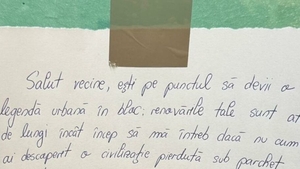 Salut vecine, ești pe punctul să devii o
legendă urbană în bloc; renovările tale sunt at
de lungi încât încep să mă întreb dacă nu cum
ai descoperit o civilizație pierdută sub parchet